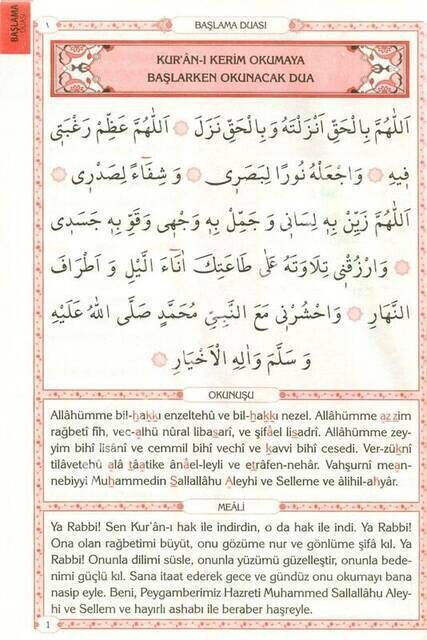 BAŞLAMA
DUASI
١
BAŞLAMA DUASI
KUR'ÂN-I KERİM OKUMAYA
BAŞLARKEN OKUNACAK DUA
اَللّٰهُمَّ بِالْحَقِّ اَنْزَلْتَهُ وَبِالْحَقِّ نَزَلَ اَللّٰهُمَّ عَظِّمْ رَغْبَتِى
فِيهِ وَاجْعَلْهُ نُورًا لِبَصَرِى وَشِفَٓاءً لِصَدْرِى
اَللّٰهُمَّ زَيِّنْ بِهِ لِسَانِى وَجَمِّلْ بِهِ وَجْهِى وَقَوِّ بِهِ جَسَدِى
وَارْزُقْنِى تِلَاوَتَهُ عَلٰى طَاعَتِكَ اٰنَٓاءَ الَّيْلِ وَاَطْرَافَ
النَّهَارِ وَاحْشُرْنِى مَعَ النَّبِىِّ مُحَمَّدٍ صَلَّى اللّٰهُ عَلَيْهِ
وَسَلَّمَ وَاٰلِهِ الْاَخْيَارِ
OKUNUŞU
Allâhümme bil-hakkı enzeltehû ve bil-hakkı nezel. Allâhümme azzim
rağbetî fîh, vec-alhü nûral libasarî, ve şifâel lisadrî. Allâhümme zey-
yim bihî lisânî ve cemmil bihî vechî ve kavvi bihî cesedî. Ver-züknî
tilâvetehû alâ tâatike ânâel-leyli ve etrâfen-nehâr. Vahşurnî mean-
nebiyyi Muhammedin Sallallâhu Aleyhi ve Selleme ve âlihil-ahyâr.
MEÂLİ
Ya Rabbi! Sen Kur'ân-ı hak ile indirdin, o da hak ile indi. Ya Rabbi!
Ona olan rağbetimi büyüt, onu gözüme nur ve gönlüme şifâ kıl. Ya
Rabbi! Onunla dilimi süsle, onunla yüzümü güzelleştir, onunla bede-
nimi güçlü kıl. Sana itaat ederek gece ve gündüz onu okumayı bana
nasip eyle. Beni, Peygamberimiz Hazreti Muhammed Sallallâhu Aley-
hi ve Sellem ve hayırlı ashabı ile beraber haşreyle.
1